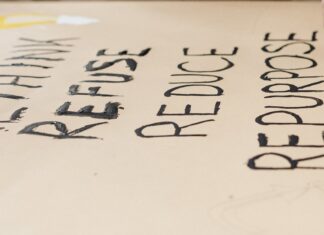 ETHINK
REFUSE
REDUCE
REPURPOSE